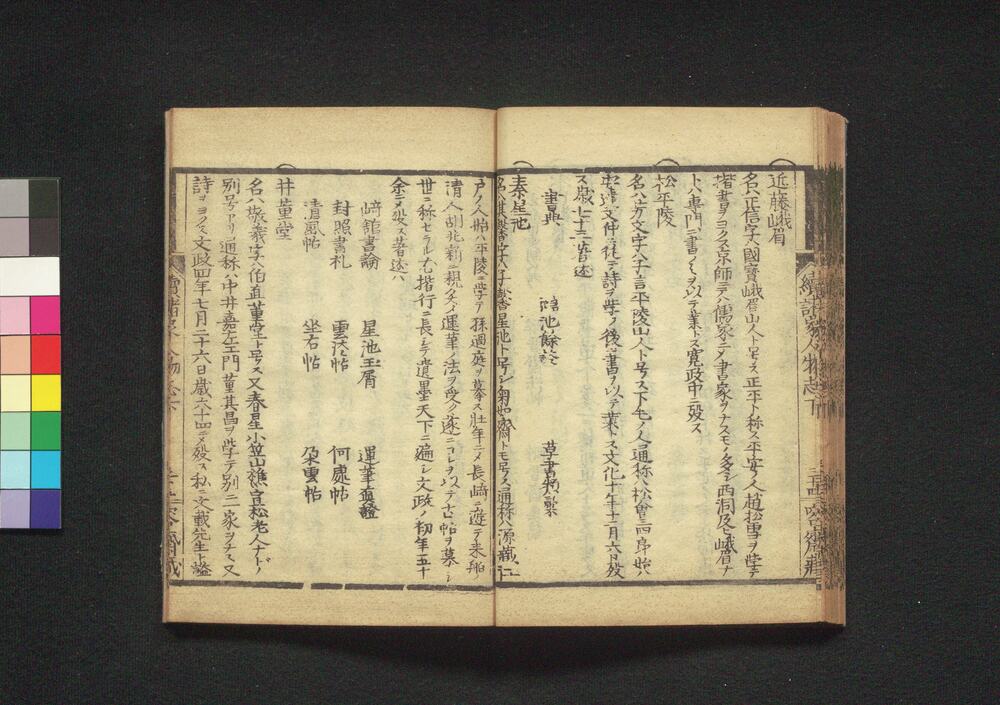 近藤峨眉
名ハ正信字ハ國寳峨眉山人ト号ス正平ト称ス平安ノ人趙松雪ヲ学テ
楷書ヲヨクス京師ニテハ儒家ニ〆書家ヲナスモノ多シ西洞及ヒ峨眉ナ
トハ専門ニ書ノミヲ以テ業トス寛政中ニ歿ス
松平陵
名ハ方文字ハ子言平陵山人ト号ス下毛ノ人通称ハ
文仲ニ従テ詩ヲ学ノ後書ヲ以テ業トス文化十年十二月六日歿
ス歳七十三著述
書典
鴻池餘談
秦星池
星池ト号シ
トモ号ス通称ハ源藏江
戸ノ人始ハ平陵ニ学テ孫過庭ヲ摹ス壮年ニ〆長﨑ニ遊テ来舶
清人胡兆新ニ親炙〆運筆ノ法ヲ受ク遂ニコレヲ以テ古帖ヲ摹シ
世ニ称セラル尤楷行ニ長シテ遺墨天下ニ遍シ文政ノ初年五十
余ニ〆歿ス著述ハ
﨑館書論
星池玉屑
運筆直證
封照書札
何處帖
清風帖
坐右帖
朶雲帖
井董堂
名ハ敬義字ハ伯直董堂ト号ス又春星小笠山樵宜松老人ナドノ
別号アリ通称ハ中井嘉左エ門董其昌ヲ学テ別ニ一家ヲナス又
詩ヲヨクス文政四年七月二十六日歳六十四ニ〆歿ス私ニ文載先生ト謚
續諸家人物志下